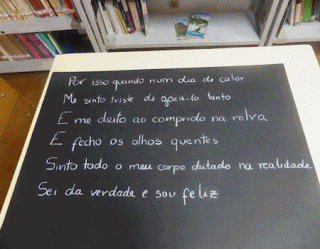 Por isso quando num dia de calor
Me sinto triste de gozá-lo tanto
E me deito ao comprido na relva
E fecho os olhos quentes
Sinto todo o meu corpo deitado na realidade
Sei da verdade e sou feliz